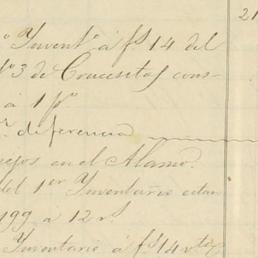 21
º Ynventº à fs 14 del
Nº 3 de Concesitas cons-
à 1 pº
diferencia
en el Alamo.
del 1er Ynventario estan
199 à 12 rs
Ynventario à fs 14 vta